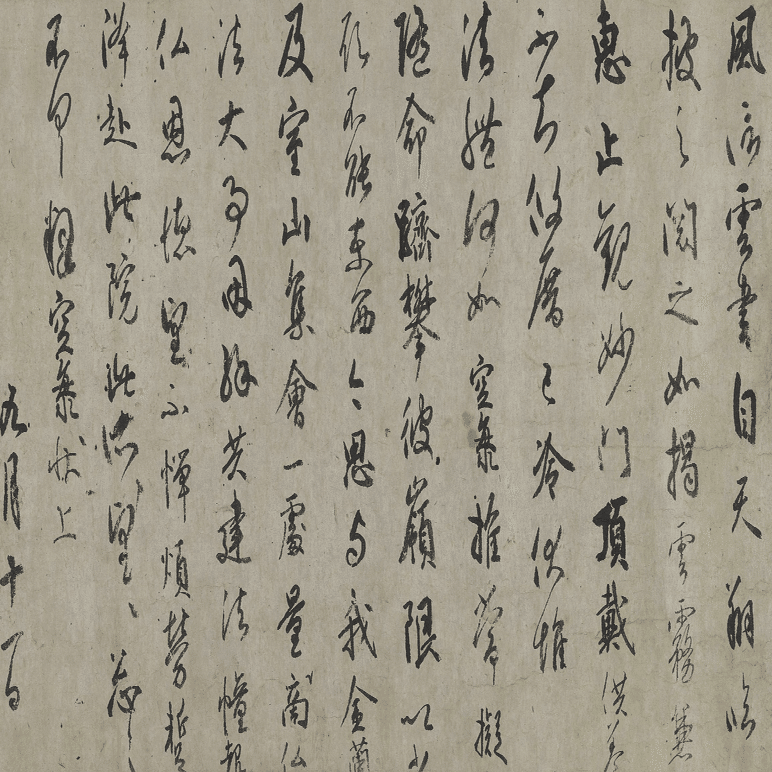 風信雲書自天翔臨
披之閲之如揭雲霧兼
惠止觀妙門頂戴供養
不知攸厝已冷伏惟
法體何如空海推常擬
隨命躋攀彼嶺限以少
願不能東西今思与我金蘭
及室山集會一處量商仏
法大事因緣共建法幢報
仏恩德望不憚煩勞蹔
降赴此院此所望々忩々
不具釋空海狀上
九月十一日